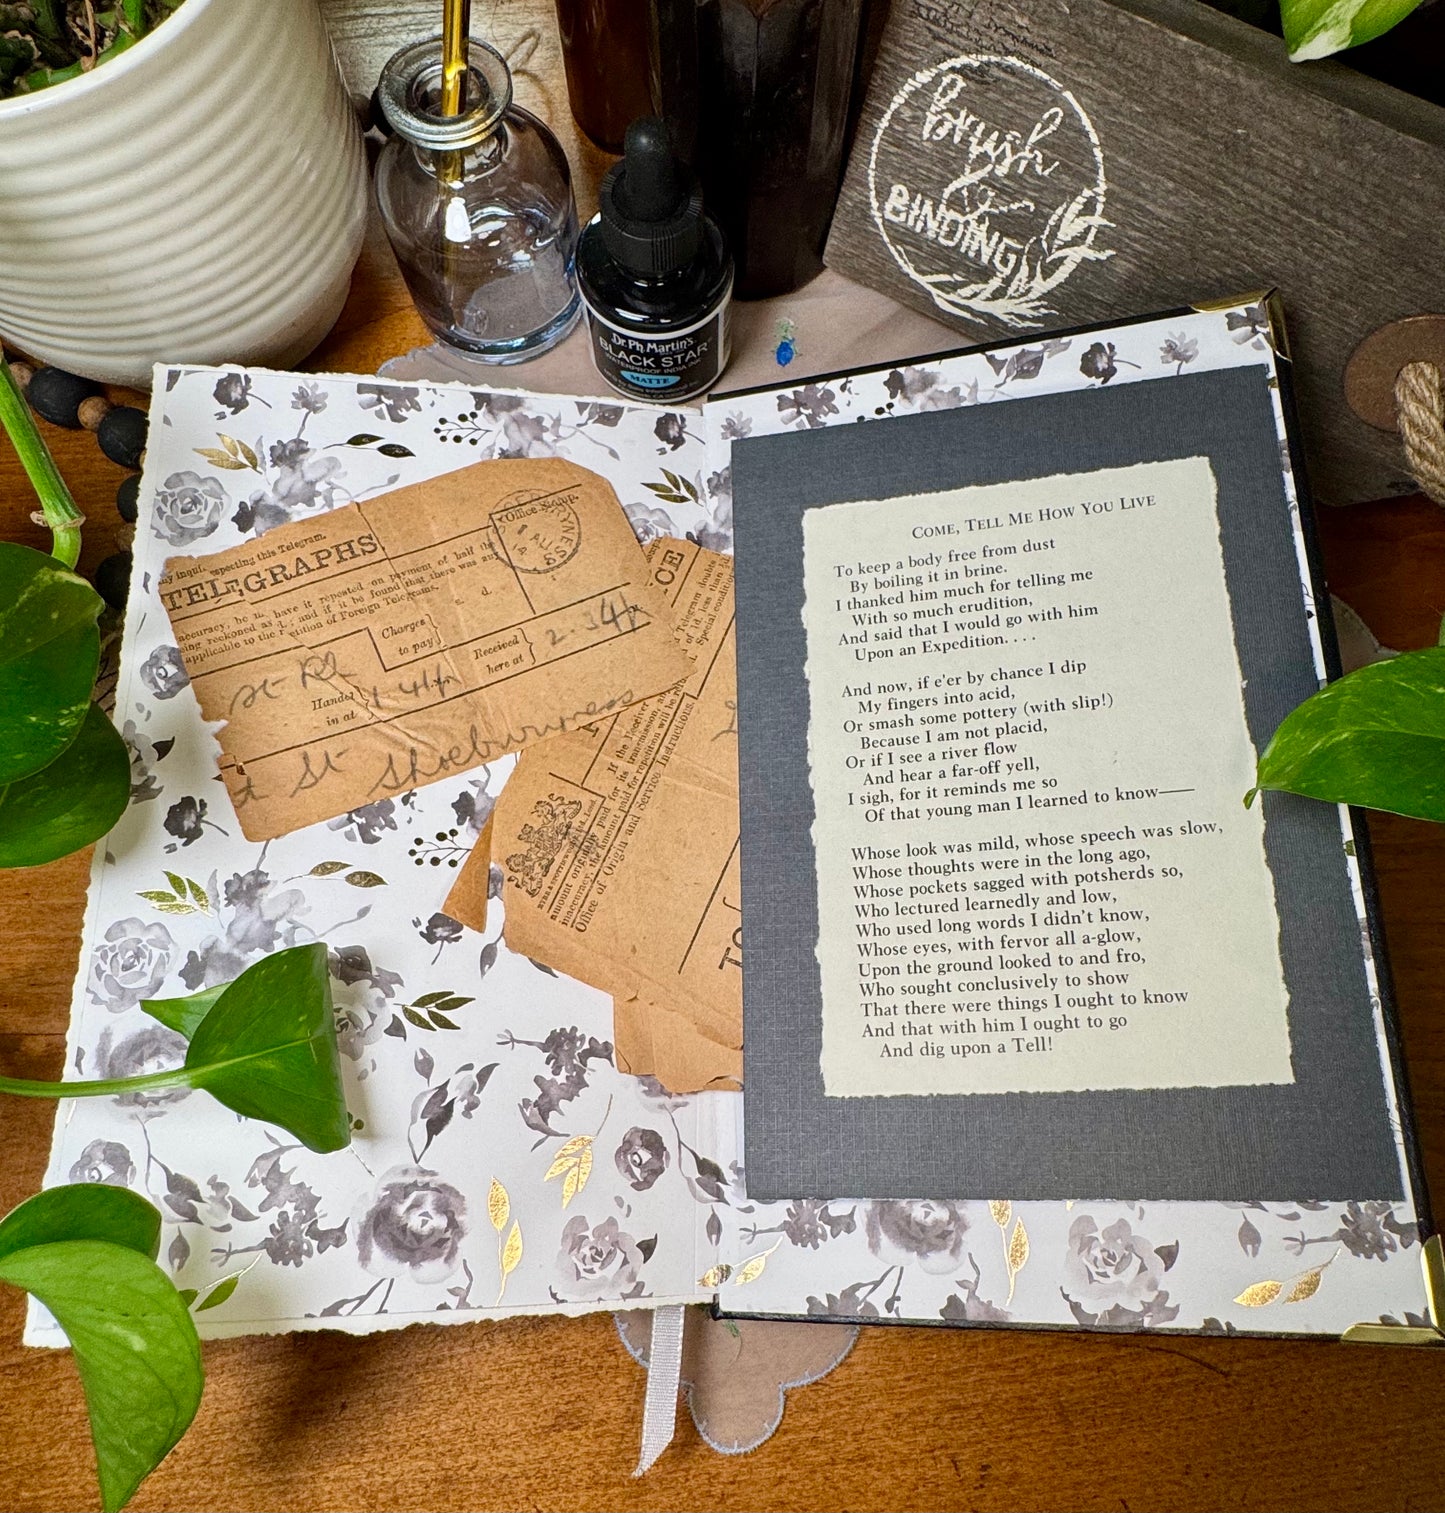 Brush
&
BINDING
Dr. Ph. Martin's
BLACK STAR
WATERPROOF INDIA INK
MATTE
respecting this Telegram.
TELEGRAPHS.
Office Stamp.
accuracy, he have it repeated on payment of half the
being reckoned as and if it be found that there was any
applicable to the Repetition of Foreign Telegrams.
Charges
to pay
s. d.
Handed
in at
1.41p
Received
here at
2.34p
St Shoeburyness
If the Receiver
transmission,
amount originally paid for its repetition will be
inaccuracy, the amount paid for
Office of Origin and Service Instructions.
TO
COME, TELL ME HOW YOU LIVE
To keep a body free from dust
By boiling it in brine.
I thanked him much for telling me
With so much erudition,
And said that I would go with him
Upon an Expedition. . . .
And now, if e'er by chance I dip
My fingers into acid,
Or smash some pottery (with slip!)
Because I am not placid,
Or if I see a river flow
And hear a far-off yell,
I sigh, for it reminds me so
Of that young man I learned to know——
Whose look was mild, whose speech was slow,
Whose thoughts were in the long ago,
Whose pockets sagged with potsherds so,
Who lectured learnedly and low,
Who used long words I didn't know,
Whose eyes, with fervor all a-glow,
Upon the ground looked to and fro,
Who sought conclusively to show
That there were things I ought to know
And that with him I ought to go
And dig upon a Tell!